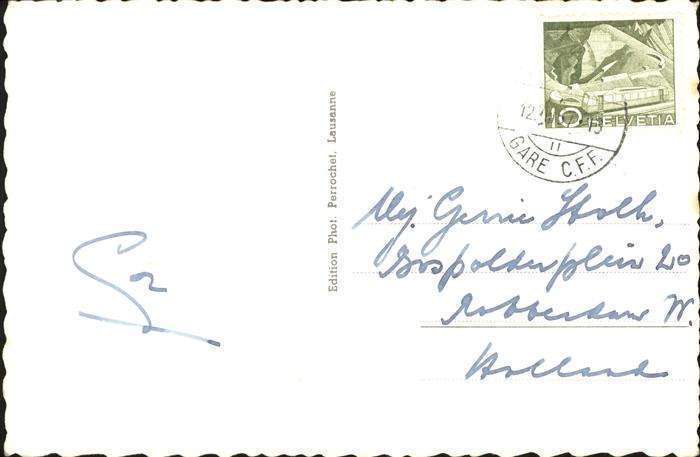 10 HELVETIA
GARE C.F.F.
11
Edition Phot. Perrochet, Lausanne
Mej. Gerrie Stolk,
Bospolderplein 20
Rotterdam W.
Holland